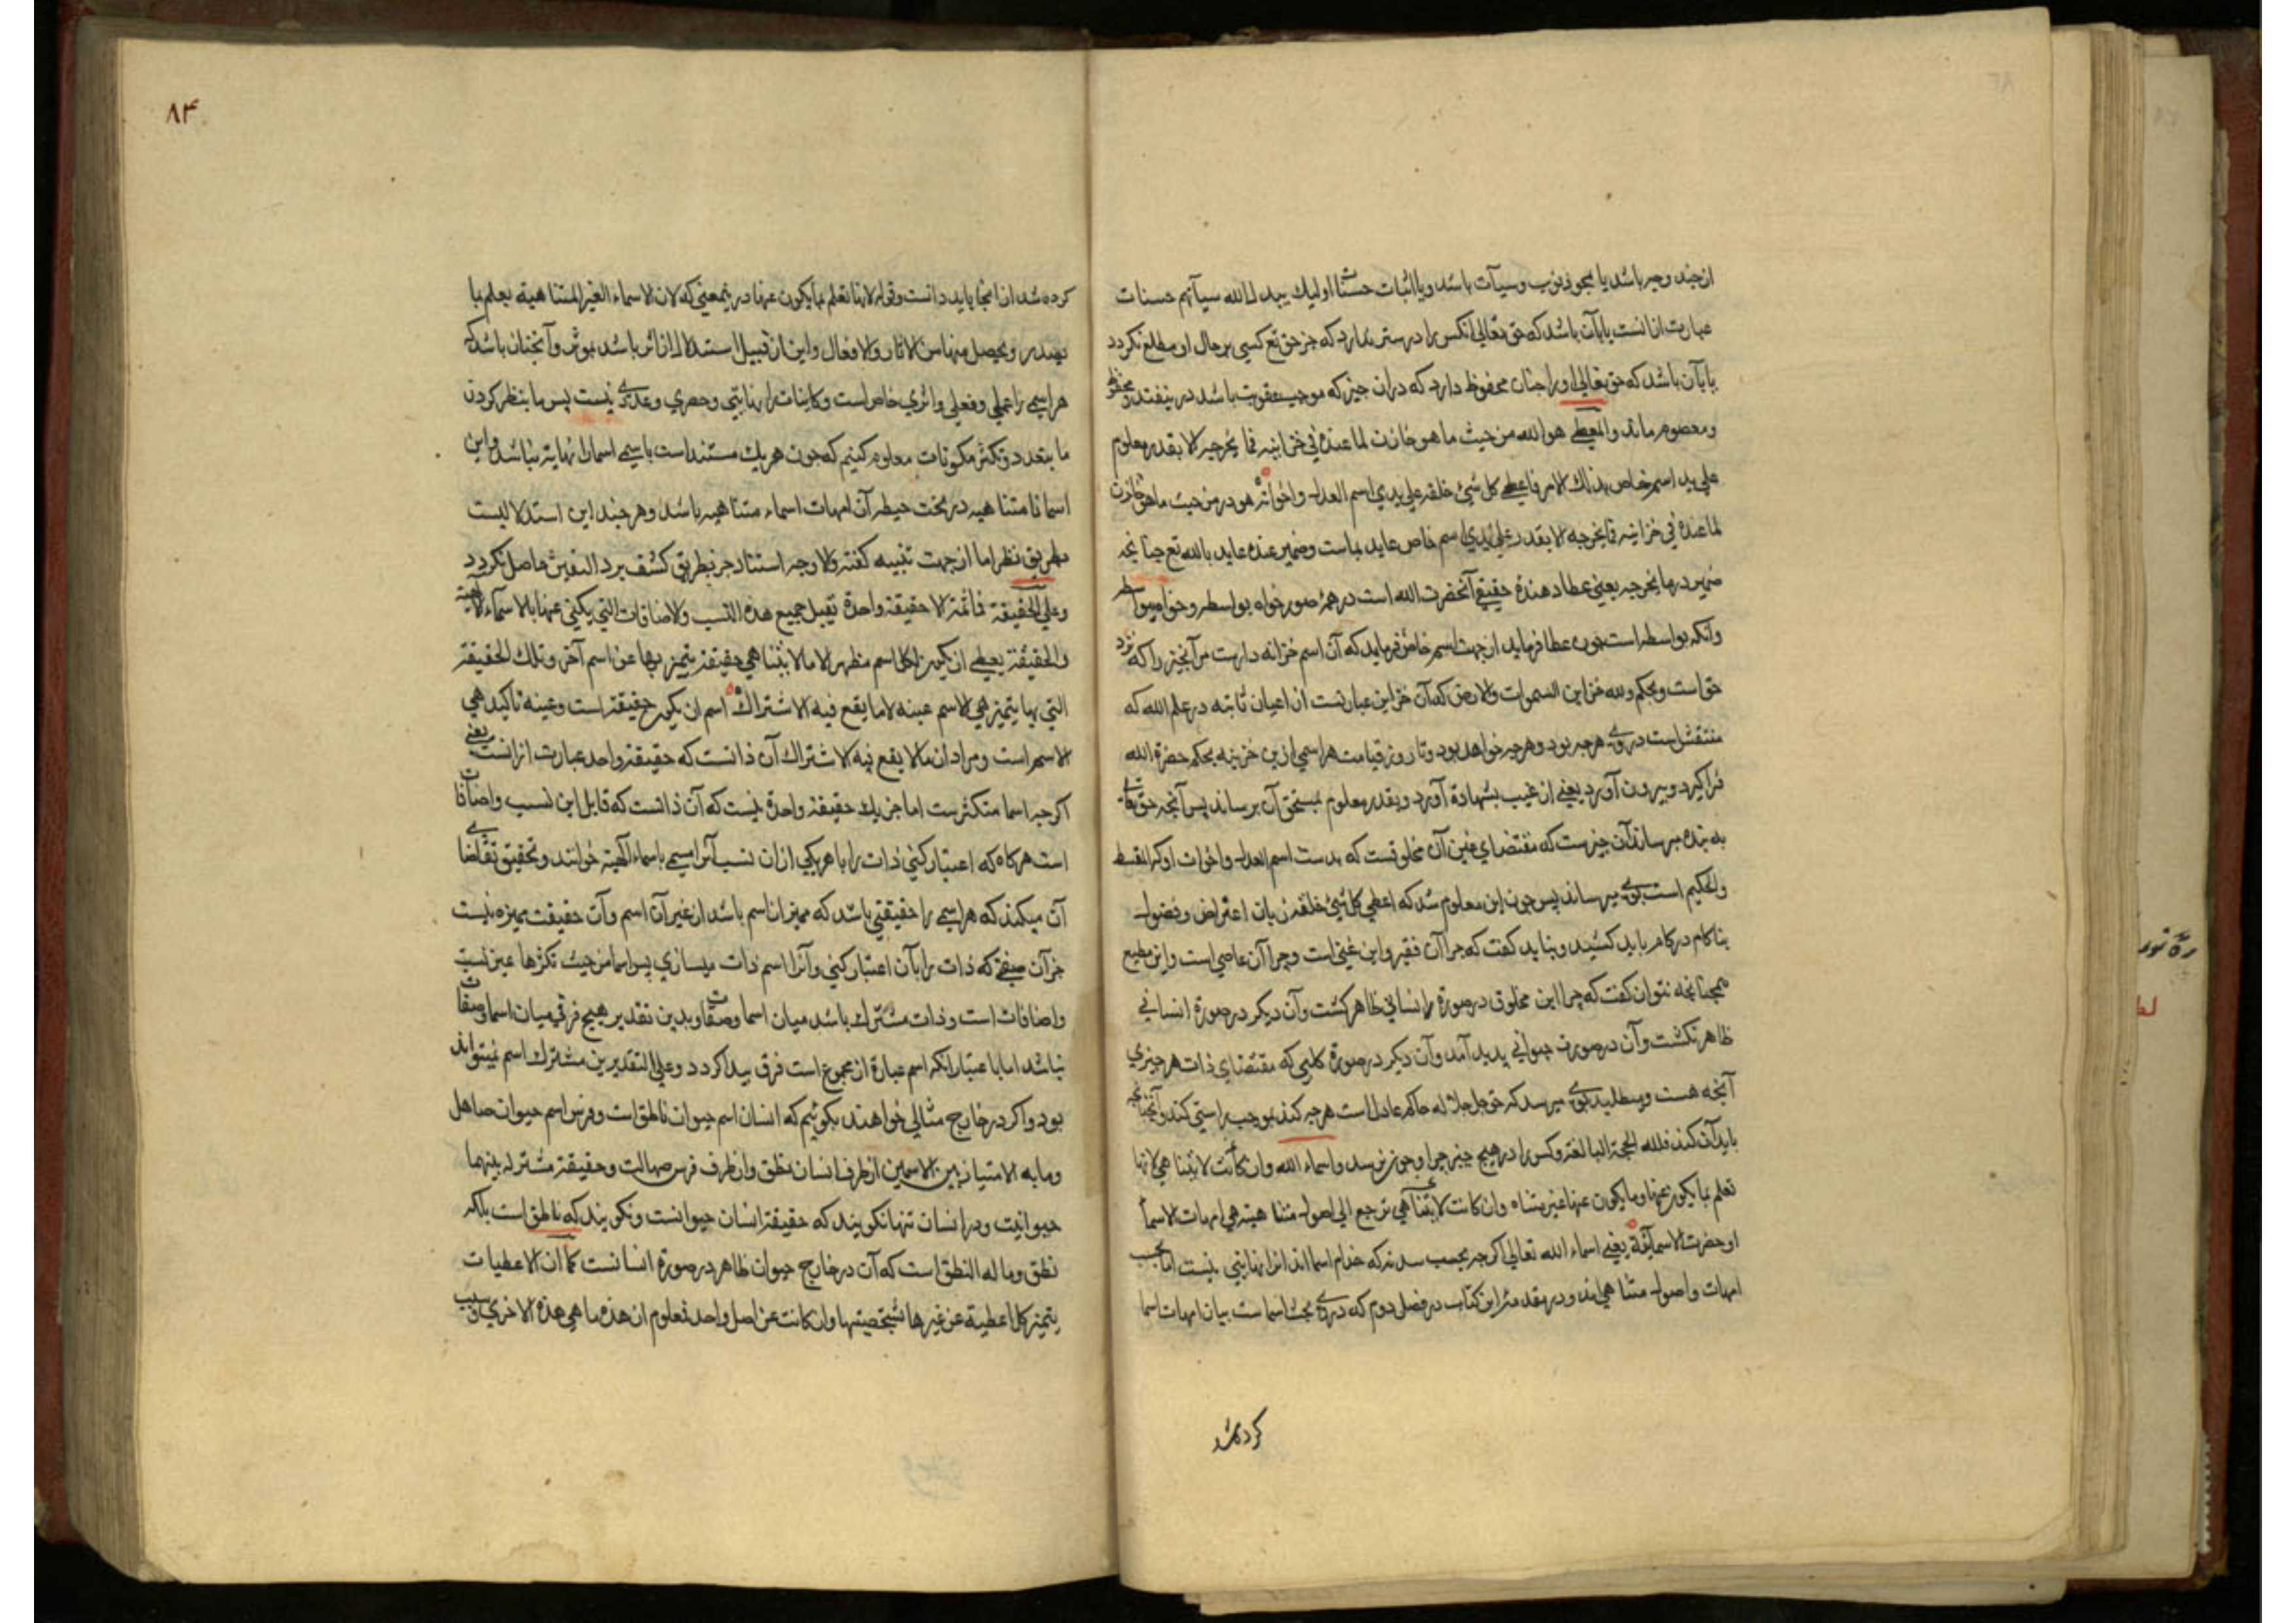 از چند وجه باشد یا بمحو ذنوب و سیآت باشد و یا اثبات حسنات اولیك یبدل الله سیآتهم حسنات
عبارت از انست یا بآن باشد که حق تعالی آنکس را در ستر بدارد که جز حق تع کسی بر حال او مطلع نکردد
یا بآن باشد که حق تعالی او را چنان محفوظ دارد که در ان چیز که موجب عقوبت باشد در نیفتد و محفوظ
و معصوم ماند والمعطی هو الله من حیث ما هو خازن لما عنده فی خزاینه فما یخرجه الا بقدر معلوم
علی ید اسم خاص بذلك الامر فاعطی کل شئ خلقه علی یدی اسم العدل واخوانه هو در من حیث ما هو خازن
لما عنده فی خزاینه فما یخرجه الا بقدر علی یدی اسم خاص عاید بماست و ضمیر عنده عاید بالله تع چنانچه
ضمیر در ما یخرجه یعنی عطا دهندهٔ حقیقی آنحضرت الله است در همهٔ صور خواه بواسطه و خواه بیواسطه
وآنکه بواسطه است چون عطا فرماید از جهت اسم خاص فرماید که آن اسم خزانه دارست مر آنچیز را که نزد
حق است و بحکم ولله خزاین السموات والارض که آن خزاین عبارتست از اعیان ثابته در علم الله که
منتقش است در وی هرچه بود و هرچه خواهد بود و تا روز قیامت هر اسمی ازین خزینه بحکم حضرة الله
فراکیرد و بیرون آورد یعنی از غیب بشهادة آورد و بقدر معلوم بمستحق آن برساند پس آنچه حق تعالی
به بنده میرساند آن چیزست که مقتضای عین آن مخلوقست که بدست اسم العدل و اخوات او که المقسط
والحکیم است بوی میرساند پس چون این معلوم شد که اعطی کل شئ خلقه زبان اعتراض و فضول
بناکام در کام باید کشید و نباید کفت که چرا آن فقیر و این غنی است و چرا آن عاصی است و این مطیع
همچنانچه نتوان کفت که چرا این مخلوق در صورة انسانی ظاهر کشت وآن دیکر در صورة انسانی
ظاهر نکشت وآن در صورت حیوانی پدید آمد وآن دیکر در صورة کلبی که مقتضای ذات هر چیزی
آنچه هست و میطلبد بوی میرسد که حق جل جلاله حاکم عادل است هرچه کند بموجب راستی کند وآنچنانچه
باید آن کند فلله الحجة البالغة و کس را در هیچ چیز چرا و چون نرسد واسماء الله وان کانت لا یتناهی لانها
تعلم بما یکون عنها وما یکون عنها غیر متناه وان کانت لا یتناهی ترجع الی اصول متناهیة هی امهات الاسماء
او حضرت الاسمائیة یعنی اسماء الله تعالی اکرچه بحسب سدنه که خدام اسما اند انرا نهایتی نیست اما بحسب
امهات و اصول متناهی اند و در مقدمهٔ این کتاب در فصل دوم که در وی بحث اسماست بیان امهات اسما
کرده شد
۸۴
کرده شد از انجا باید دانست و قوله لانها تعلم بما یکون عنها در ینمعنی که لان الاسماء الغیر المتناهیة یعلم بما
یصدر ویحصل منها من الاثار والافعال واین از قبیل استدلال از اثر باشد بموثر وآنچنان باشد که
هر اسمی را عملی و فعلی و اثری خاص است و کاینات را نهایتی و حصری و عددی نیست پس ما بنظر کردن
ما بتعدد و تکثر مکونات معلوم کنیم که چون هر یك مستند است باسمی اسما را نهایة نباشد و این
اسما نامتناهیه در تحت حیطهٔ آن امهات اسماء متناهیه باشد و هر چند این استدلالیست
بطریق نظر اما از جهت تنبیه کفته والا وجه استناد جز بطریق کشف برد الیقین حاصل نکردد
وعلی الحقیقة فما ثمة الا حقیقة واحدة تقبل جمیع هذه النسب والاضافات التی یکنی عنها بالاسماء الالهیة
والحقیقة یعطی ان یکون لکل اسم مظهر الا ما لا یتناهی حقیقة یتمیز بها عن اسم آخر وتلك الحقیقة
التی بها یتمیز هی الاسم عینه لا ما یقع فیه الاشتراك اسم ان یکون حقیقة است وعینه تاکید هی
الاسم است و مراد از ما لا یقع فیه الاشتراك آن ذاتست که حقیقة واحده عبارت از انست یعنی
اکرچه اسما متکثرست اما جز یك حقیقة واحدة نیست که آن ذاتست که قابل این نسب واضافات
است هرکاه که اعتبار کنی ذات را با هر یکی از ان نسب آنرا مسمی باسماء الهیة خوانند و تحقیق تقاضای
آن میکند که هر اسمی را حقیقتی باشد که ممیز ان اسم باشد از غیر آن اسم وآن حقیقت ممیزه نیست
جز آن صفتی که ذات را بآن اعتبار کنی وآنرا اسم ذات میسازی پس اسما من حیث تکثرها عین نسبت
واضافات است و ذات مشترك باشد میان اسما وصفات و بدین تقدیر هیچ فرقی میان اسما وصفات
نباشد اما با عتبار آنکه اسم عبارة از مجموع است فرق پیدا کردد وعلی التقدیرین مشترك اسم نمیتواند
بود و اکر در خارج مثالی خواهند بکوئیم که انسان اسم حیوان ناطق است و فرس اسم حیوان صاهل
وما به الامتیاز بین الاسمین از طرف انسان نطق و از طرف فرس صهالت و حقیقة مشترکه بینهما
حیوانیت و در انسان تنها نکویند که حقیقة انسان حیوانست و نکویند که ناطق است بلکه
نطق وما له النطق است که آن در خارج حیوان ظاهر در صورة انسانست کما ان الاعطیات
یتمیز کل اعطیة عن غیرها بشخصیتها وان کانت عن اصل واحد فمعلوم ان هذه ما هی هذه الاخری وسبب